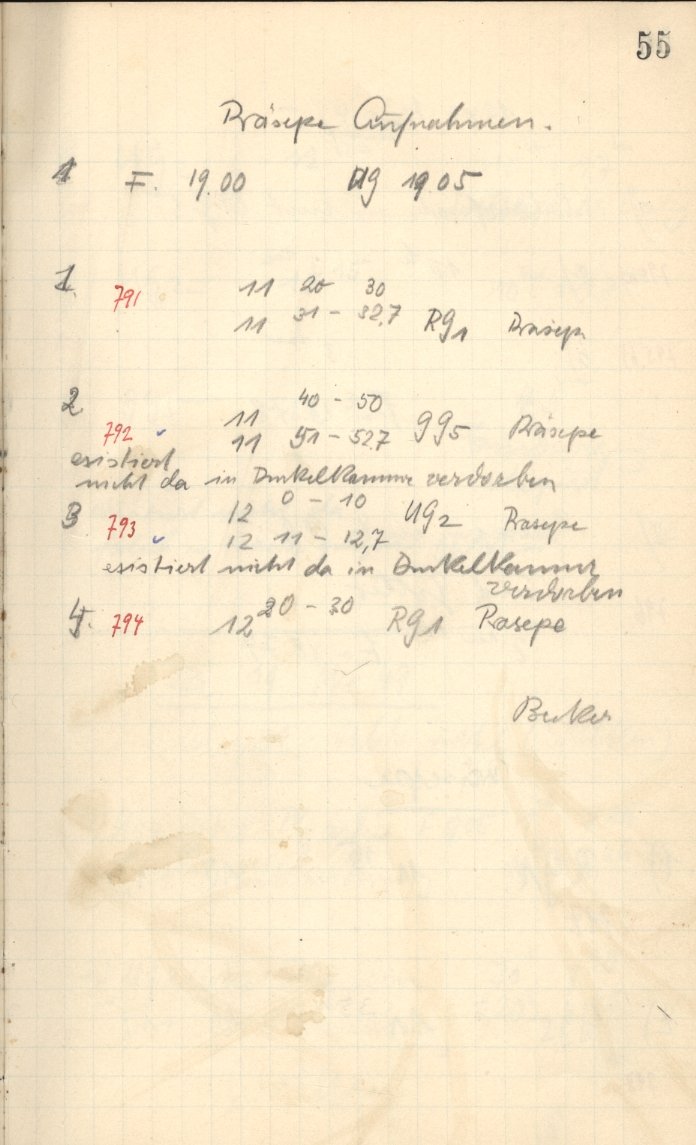 55
Präsepe Aufnahmen.
1 F. 19.00 Ug 19 05
1. 791 11 20 30
11 31 - 32,7 RG1 Präsepe
2 11 40 - 50
792 11 51 - 52,7 gg5 Präsepe
existiert
nicht da in Dunkelkammer verdorben
3 793 12 0 - 10 UG2 Präsepe
12 11 - 12,7
existiert nicht da in Dunkelkammer
verdorben
4. 794 12 20 - 30 RG1 Präsepe